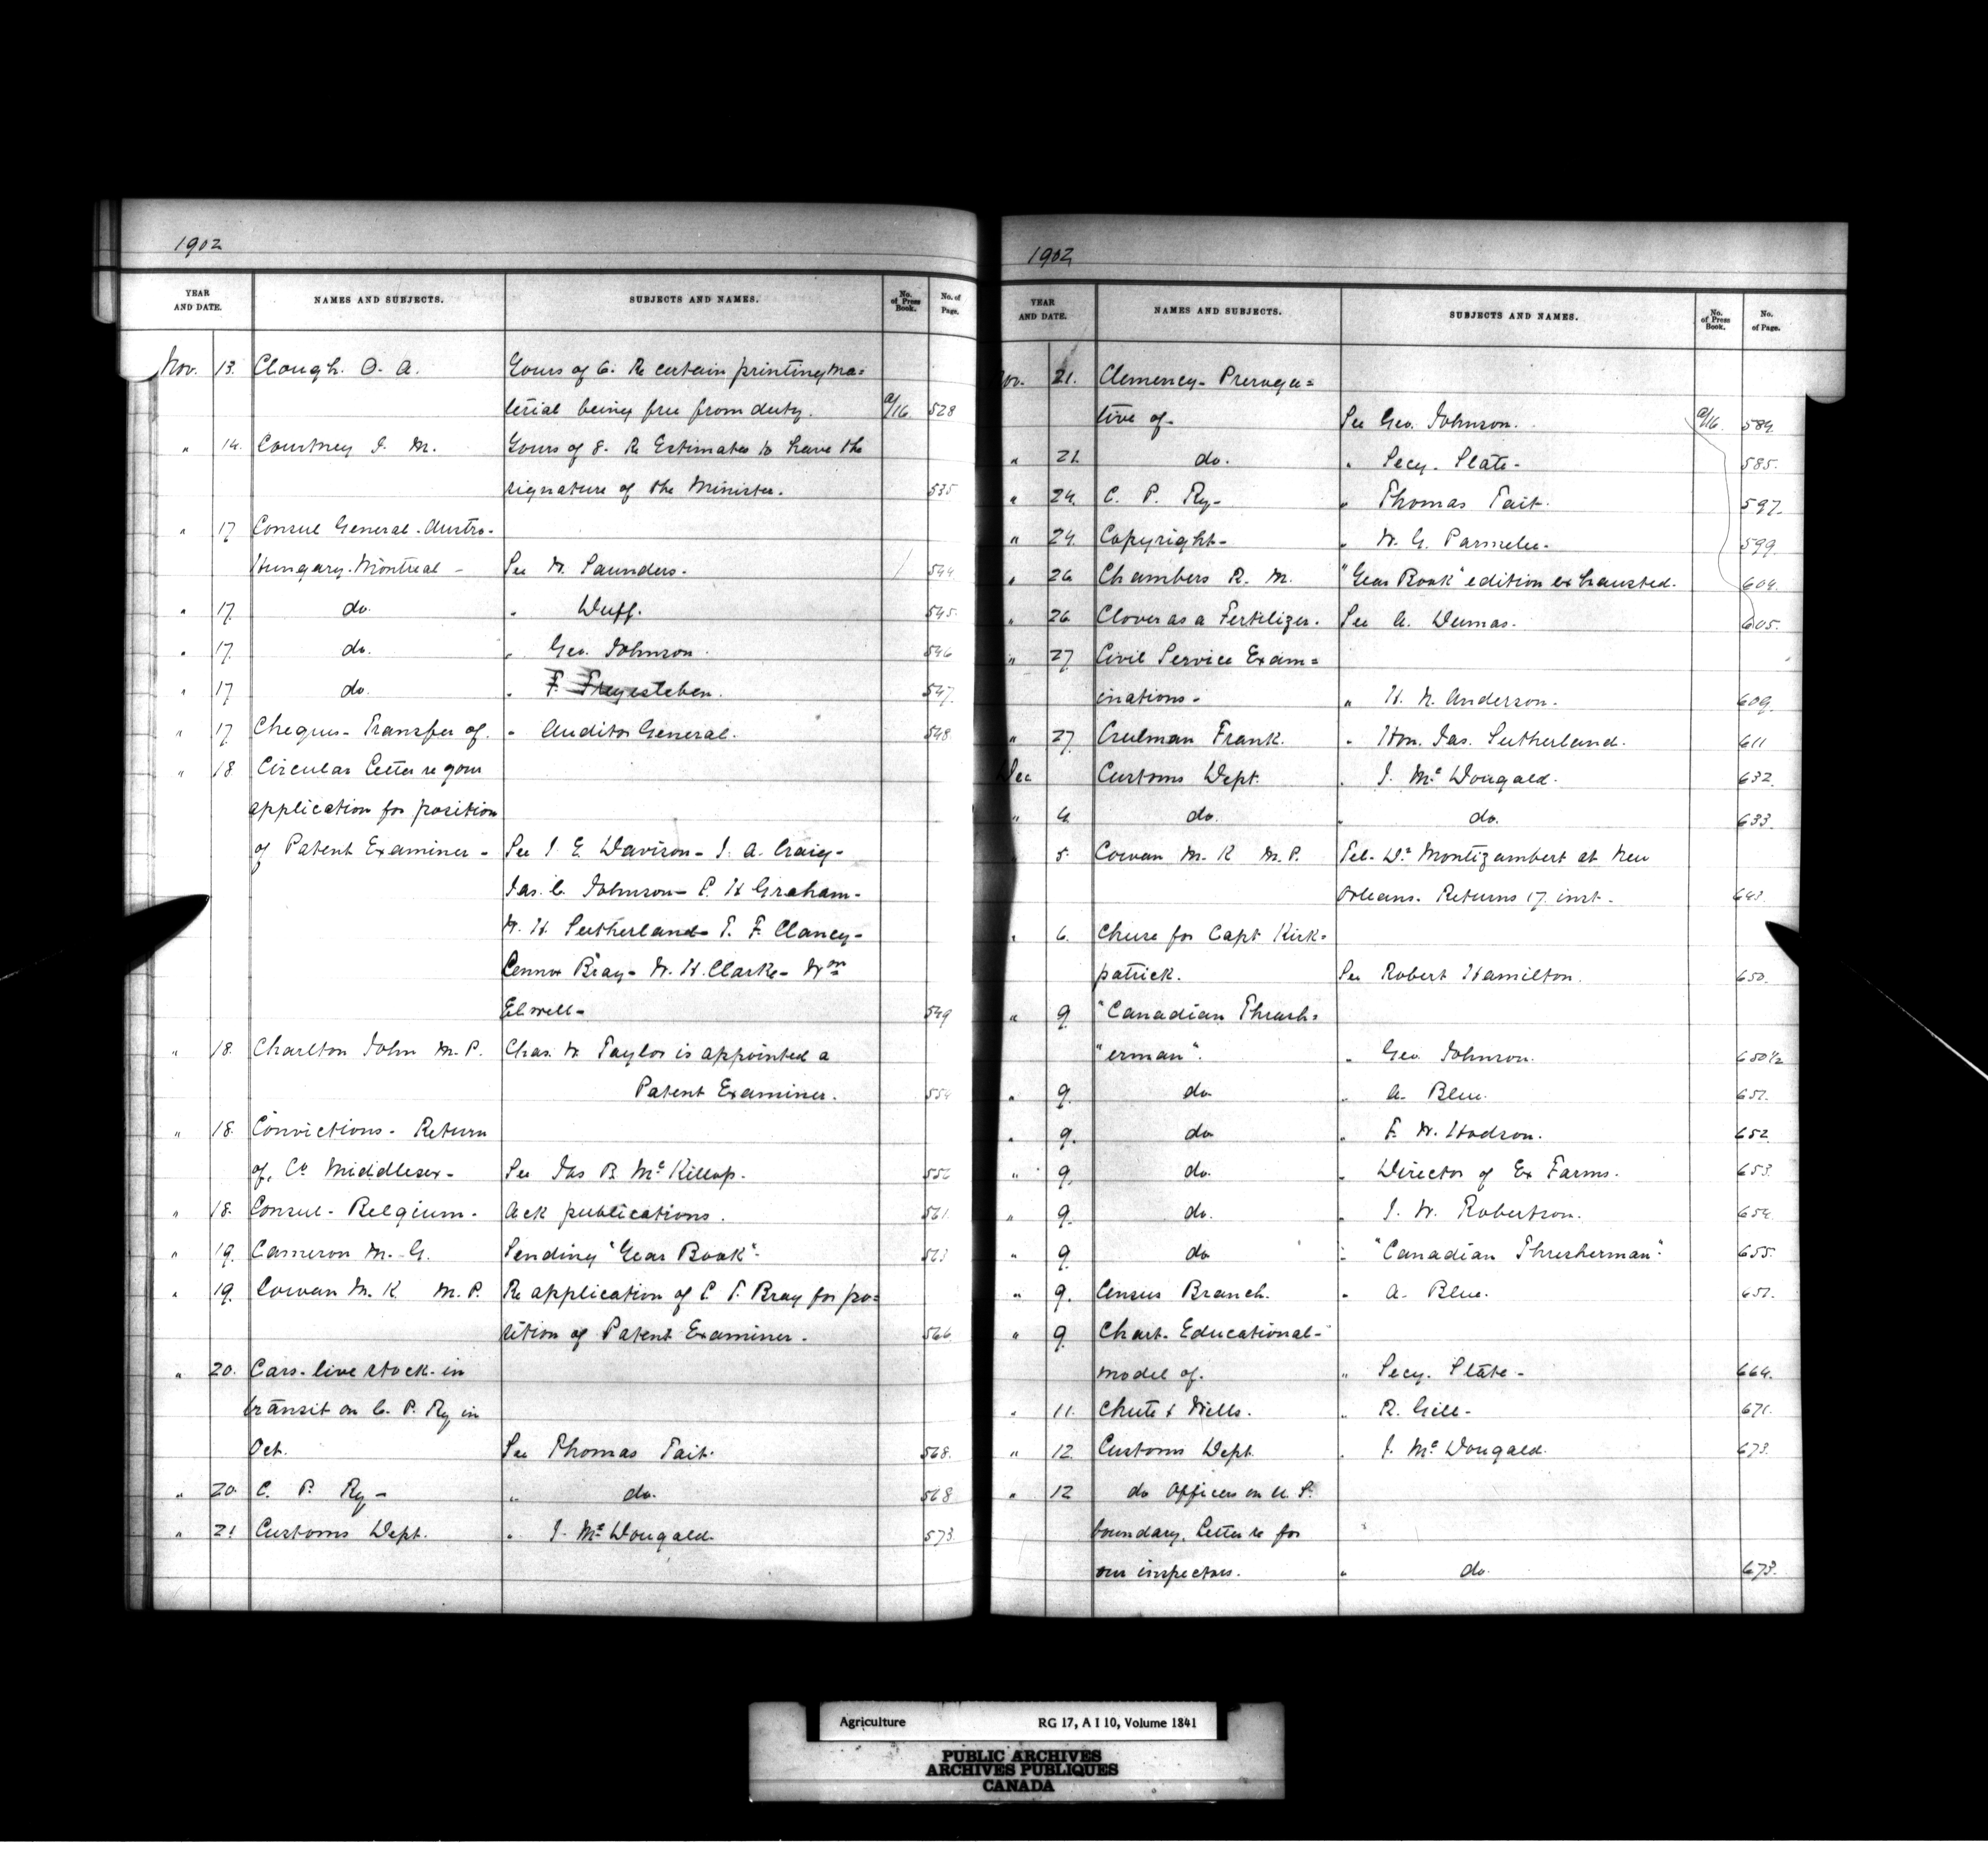 1902
YEAR AND DATE. NAMES AND SUBJECTS. SUBJECTS AND NAMES. No. of Press Book. No. of Page.
Nov. 13. Clough. O. A. Yours of 6. Re certain printing ma=
terial being free from duty. a/16. 528
" 14. Courtney J. M. Yours of 8. Re Estimates to have the
signature of the Minister. 535
" 17 Consul General. Austro-
Hungary. Montreal - See W. Saunders. 544
" 17. do. " Duff. 545.
" 17. do. " Geo. Johnson. 546
" 17 do. " F. Freyesleben. 547.
" 17 Cheques - Transfer of. " Auditor General. 548
" 18 Circular Letter re your
application for position
of Patent Examiner - See J. E. Davison - J. A. Craig -
Jas. C. Johnson - P. H Graham -
W. H. Sutherland - T. F. Clancy -
Lennox Bray - W. H. Clarke - Wm
Elwell - 549
" 18. Charlton John M. P. Chas. W Taylor is appointed a
Patent Examiner. 554
" 18. Convictions - Return
of, Co Middlesex - See Jas B. McKillop.
" 18. Consul - Belgium - Ack publications. 561.
" 19. Cameron M. G. Sending "Year Book". 563
" 19. Cowan M. K. M. P. Re application of C. T. Bray for po=
sition of Patent Examiner. 566
" 20. Cars - live stock - in
transit on C. P. Ry in
Oct. See Thomas Tait. 568.
" 20. C. P. Ry - " do. 568
" 21 Customs Dept. " J. McDougald. 573.
1902
YEAR AND DATE. NAMES AND SUBJECTS. SUBJECTS AND NAMES. No. of Press Book. No. of Page.
Nov. 21. Clemency - Preroga=
tive of - See Geo. Johnson. a/16. 584.
" 21. do. " Secy. State - 585.
" 24. C. P. Ry - " Thomas Tait. 597.
" 24. Copyright - " W. G. Parmelee. 599.
" 26 Chambers R. M. "Year Book" edition exhausted. 604.
" 26 Clover as a Fertilizer. See A. Dumas. 605.
" 27 Civil Service Exam=
inations - " H. N. Anderson. 609.
" 27. Frank. " Hon. Jas. Sutherland. 611
Dec Customs Dept. " J. McDougald. 632.
" 4 do. " do. 633.
" 5. Cowan M. K M. P. Tel. Dr Montizambert at New
Orleans. Returns 17 inst. 643.
" 6. for Capt Kirk=
patrick. See Robert Hamilton. 650.
" 9 "Canadian Thresh=
"erman". " Geo Johnson. 650½
" 9. do " A. Blue. 651.
" 9. do " F. W. Hodson. 652
" 9. do. " Director of Ex Farms. 653.
" 9. do. " J. W. Robertson. 654.
" 9 do " "Canadian Thresherman". 655.
" 9. Census Branch. " A. Blue. 651.
" 9 Chart. Educational -
model of. " Secy. State - 664.
" 11. Chute & Mills. " R. Gill - 671.
" 12. Customs Dept. " J. McDougald. 673.
" 12 do Officers on U. S.
boundary. Letter re for
our inspectors. " do. 673.
Agriculture RG 17, A I 10, Volume 1841
PUBLIC ARCHIVES
ARCHIVES PUBLIQUES
CANADA